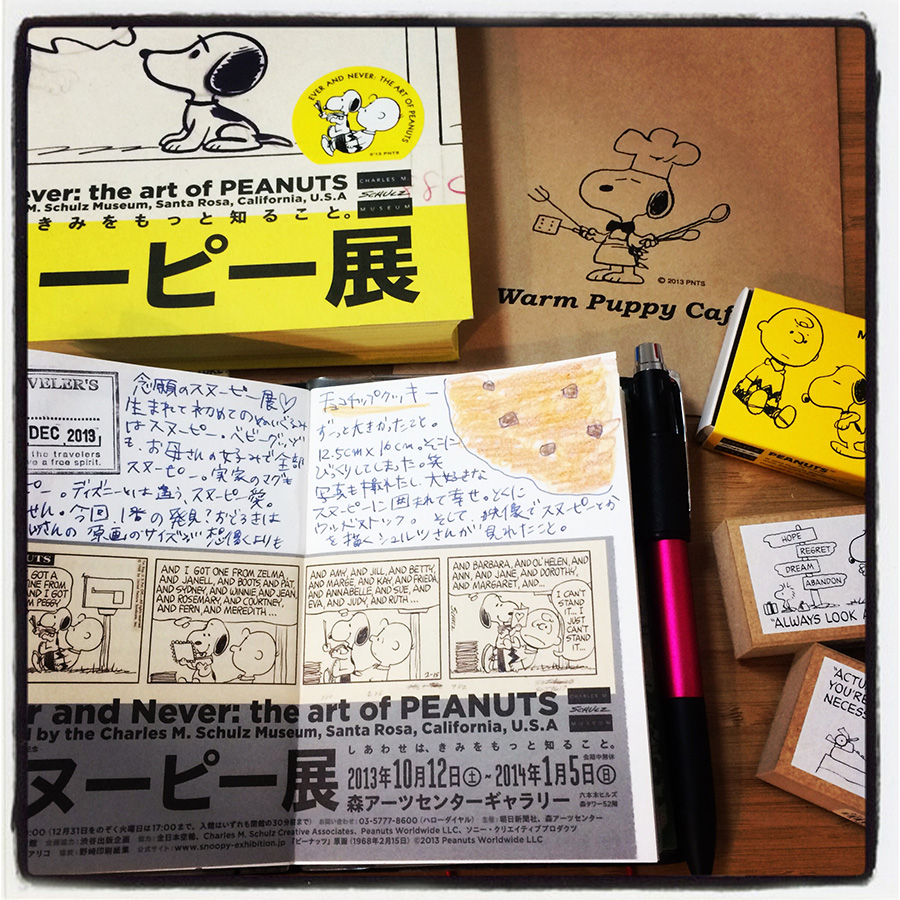 EVER AND NEVER: THE ART OF PEANUTS
©'13 PNTS
ever: the art of PEANUTS
M. Schulz Museum, Santa Rosa, California, U.S.A
CHARLES M.
SCHULZ
MUSEUM
きみをもっと知ること。
ーピー展
© 2013 PNTS
Warm Puppy Caf
PEANUTS
HOPE
REGRET
DREAM
ABANDON
"ALWAYS LOOK A
"ACTU
YOU'RE
NECESS
VELER'S
DEC 2013
the travelers
e a free spirit.
念願のスヌーピー展♡
生まれて初めてのぬいぐるみ
はスヌーピー。ベビーグッズ
も、お母さんの女子みで全部
スヌーピー。実家のマグも
ピー。ディズニーとは違う、スヌーピー愛。
せん。今回、1番の発見?おどろきは
原画のサイズが想像よりも
チョコチップクッキー
ずーっと大きかったこと。
12.5cm×16cm。そこに
びっくりしてしまった。笑
写真も撮れたし、大好きな
スヌーピーに囲まれて幸せ。とくに
ウッドストック。そして、映像でスヌーピーとか
を描くシュルツさんが見れたこと。
NUTS
GOT A
INE FROM
AND I GOT
M PEGGY
AND I GOT ONE FROM ZELMA,
AND JANELL, AND BOOTS AND PAT,
AND SYDNEY, AND WINNIE, AND JEAN,
AND ROSEMARY, AND COURTNEY,
AND FERN, AND MEREDITH...
AND AMY, AND JILL, AND BETTY,
AND MARGE, AND KAY, AND FRIEDA,
AND ANNABELLE, AND SUE, AND
EVA, AND JUDY, AND RUTH...
2-15
AND BARBARA, AND OL' HELEN, AND
ANN, AND JANE, AND DOROTHY,
AND MARGARET, AND...
I CAN'T
STAND
IT... I
JUST
CAN'T
STAND
IT...
er and Never: the art of PEANUTS
d by the Charles M. Schulz Museum, Santa Rosa, California, U.S.A
CHARLES M.
SCHULZ
MUSEUM
しあわせは、きみをもっと知ること。
ヌーピー展
2013年10月12日(土)~2014年1月5日(日)
会期中無休
森アーツセンターギャラリー
六本木ヒルズ
森タワー52階
:00(12月31日をのぞく火曜日は17:00まで。入館はいずれも閉館の30分前まで) お問い合わせ:03-5777-8600(ハローダイヤル) 主催:朝日新聞社、森アーツセンター
企画協力:渋谷出版企画 協力:全日本空輸、Charles M. Schulz Creative Associates、Peanuts Worldwide LLC、ソニー・クリエイティブプロダクツ
アリコ 協賛:野崎印刷紙業 公式サイト:www.snoopy-exhibition.jp 「ピーナッツ」原画(1968年2月15日) ©2013 Peanuts Worldwide LLC